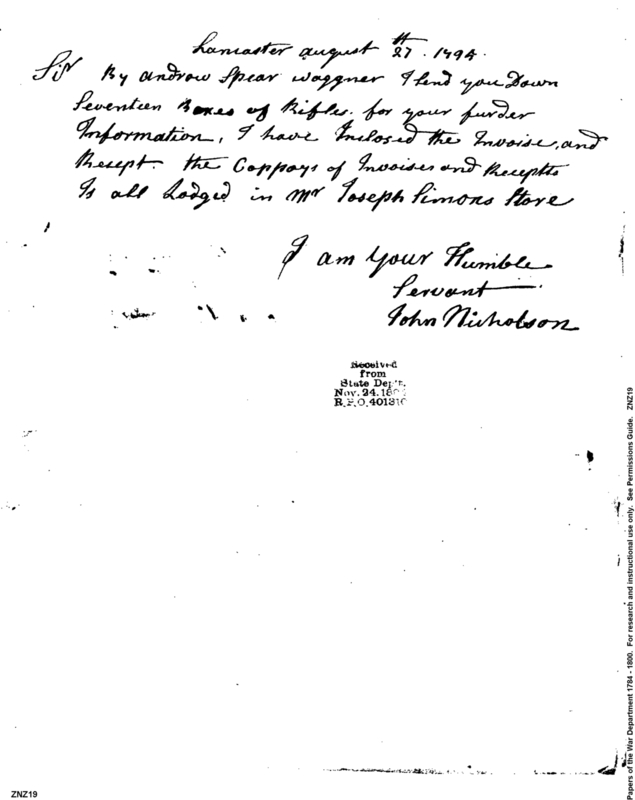 Lancaster august 27th. 1794.
Sir By andrew Spear waggner I Send you Down
Seventeen Boxes of Rifles. for your furder
Information, I have Inclosed the Invoise, and
Recept. the Coppays of Invoises and Receptts
Is all Lodged in Mr Joseph Simons Store
I am your Humble
Servant
John Nicholson
Received
from
State Dep't.
Nov. 24. 18
R.P.O. 401310
Papers of the War Department 1784 - 1800. For research and instructional use only. See Permissions Guide. ZNZ19
ZNZ19